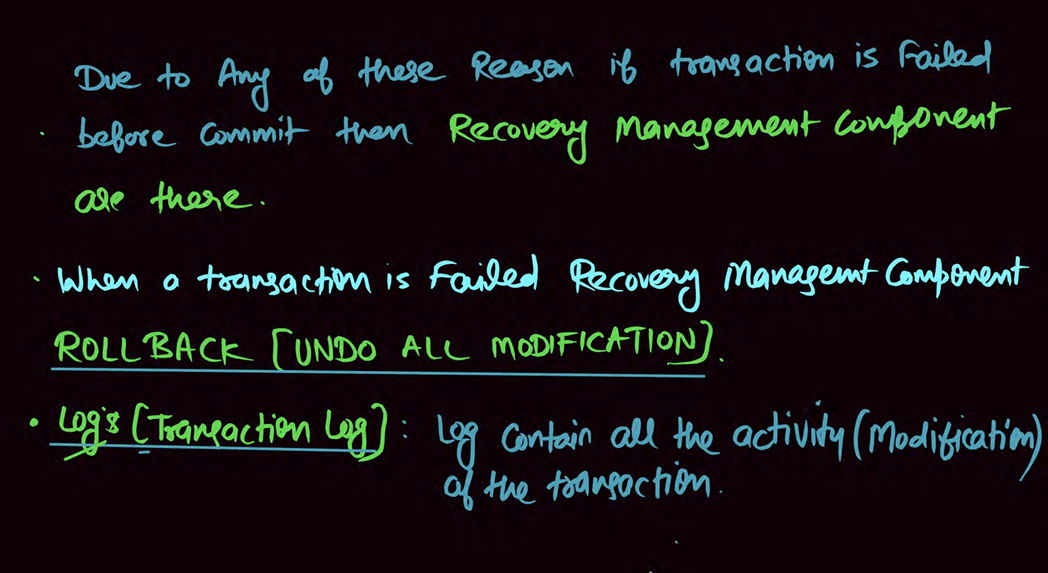 Due to Any of these Reason if transaction is Failed
· before Commit then Recovery Management Component
are there.
· When a transaction is Failed Recovery Managemt Component
ROLLBACK [UNDO ALL MODIFICATION].
· Log's [Transaction Log] : Log Contain all the activity (Modification)
of the transaction.